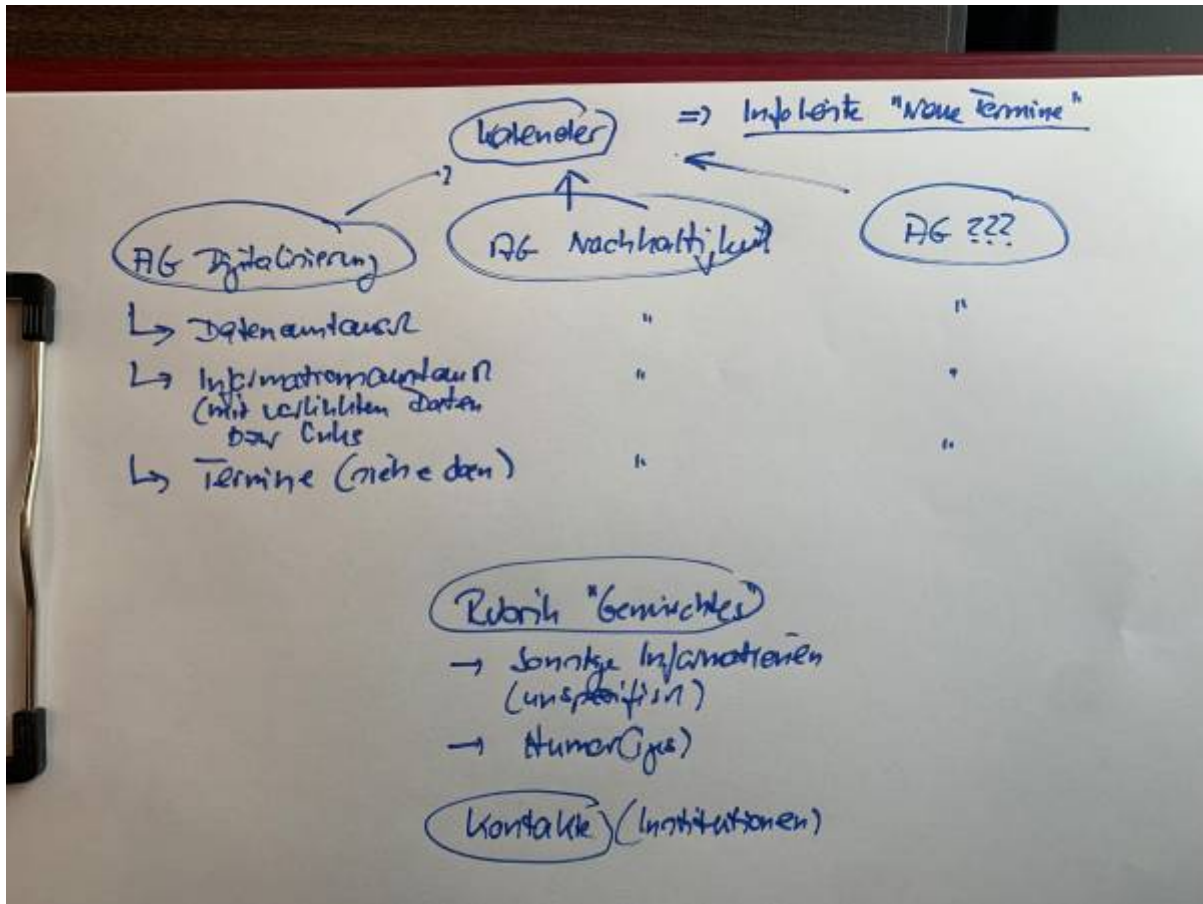 Kalender => Infoleiste "Neue Termine"
AG Digitalisierung AG Nachhaltigkeit AG ???
↳ Datenaustausch " "
↳ Informationsaustausch " "
(mit verlinkten Daten
bzw Links "
↳ Termine (siehe oben) "
Rubrik "Gemischtes"
→ Sonstige Informationen
(unspezifisch)
→ Humor(iges)
Kontakte (Institutionen)